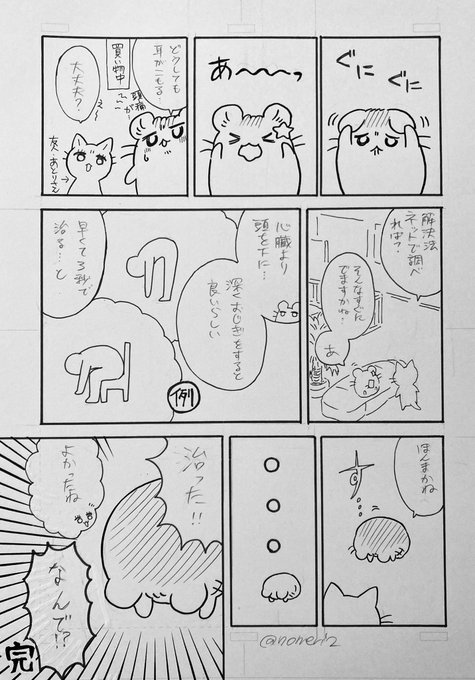 ぐに
ぐに
あ〜〜〜っ
どうしても
耳がこもる…
頭痛が
買い物中
大丈夫？
友人
解決法
ネットで調べ
れば？
そんなすぐに
でますかね…
あ
心臓より
頭を下に…
深くおじぎをすると
良いらしい
例
早くて3秒で
治る…と
ほんまかね
す…
治った!!
よかったね
なんで!?
完